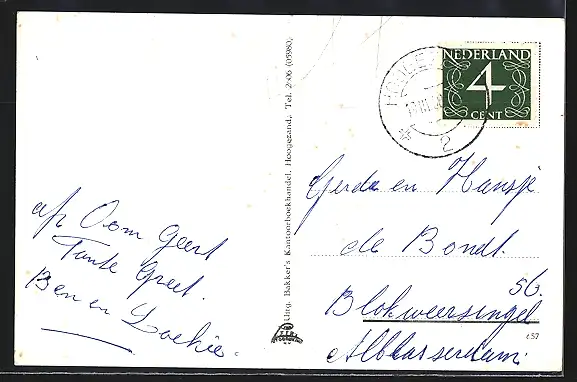 NEDERLAND
4
CENT
2
afz Oom Geert
Tante Greet.
Ben en Loekie.
Uitg. Bakker's Kantoorboekhandel, Hoogezand, Tel. 2806 (05980)
Gerda en Hansje
de Bondt.
56.
Blokweersingel
Alblasserdam.